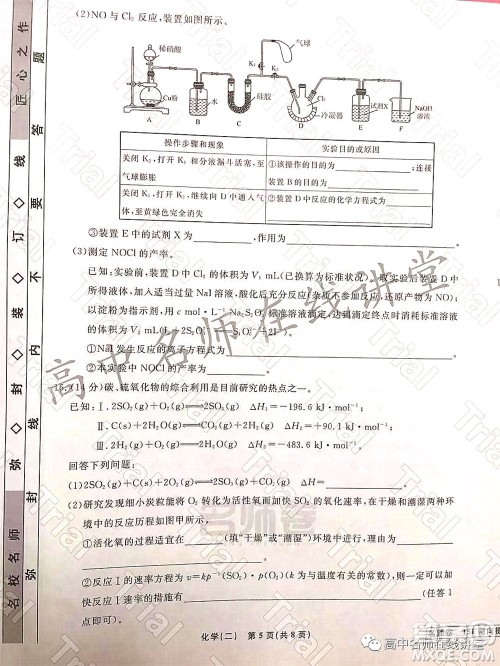 (2)NO与Cl₂反应,装置如图所示。
稀硝酸
气球
K₁
K₂
Cu粉
水
硅胶
Cl₂
冷凝器
试剂X
NaOH
溶液
A B C D E F
操作步骤和现象 实验目的或原因
关闭K₂,打开K₁和分液漏斗活塞,至
气球膨胀
①该操作的目的为 ;连接
装置B的目的为
关闭K₁,打开K₂,继续向D中通入气
体,至黄绿色完全消失
②装置D中反应的化学方程式为
③装置E中的试剂X为 ,作用为 。
(3)测定NOCl的产率。
已知:实验前,装置D中Cl₂的体积为V₁ mL(已换算为标准状况),取实验后装置D中
所得液体,加入适当过量NaI溶液,酸化后充分反应(杂质不参加反应,还原产物为NO);
以淀粉为指示剂,用c mol·L⁻¹ Na₂S₂O₃标准溶液滴定,达到滴定终点时消耗标准溶液
的体积为V₂ mL(I₂+2S₂O₃²⁻══S₄O₆²⁻+2I⁻)。
①NaI发生反应的离子方程式为 。
②本实验中NOCl的产率为 。
(14分)碳、硫氧化物的综合利用是目前研究的热点之一。
已知:Ⅰ.2SO₂(g)+O₂(g)⇌2SO₃(g) ΔH₁=-196.6 kJ·mol⁻¹;
Ⅱ.C(s)+2H₂O(g)⇌CO₂(g)+2H₂(g) ΔH₂=+90.1 kJ·mol⁻¹;
Ⅲ.2H₂(g)+O₂(g)⇌2H₂O(g) ΔH₃=-483.6 kJ·mol⁻¹。
回答下列问题:
(1)2SO₂(g)+CO₂(g)⇌2SO₃(g)+C(s) ΔH= 。
(2)研究发现细小炭粒能将O₂转化为活性氧而加快SO₂的氧化速率,在干燥和潮湿两种环
境中的反应历程如图甲所示。
①活化氧的过程适宜在 (填“干燥”或“潮湿”)环境中进行,理由为
。
②反应Ⅰ的速率方程为v=kp⁻¹(SO₂)·p(O₂)(k为与温度有关的常数),则一定可以加
快反应Ⅰ速率的措施有 (任答1
点)。
化学(二) 第5页(共8页)
匠心之作
名校名师
弥◇封◇装◇订◇线
密封线内不要答题
高中名师在线讲堂
名师卷
Trial
高中名师在线讲堂